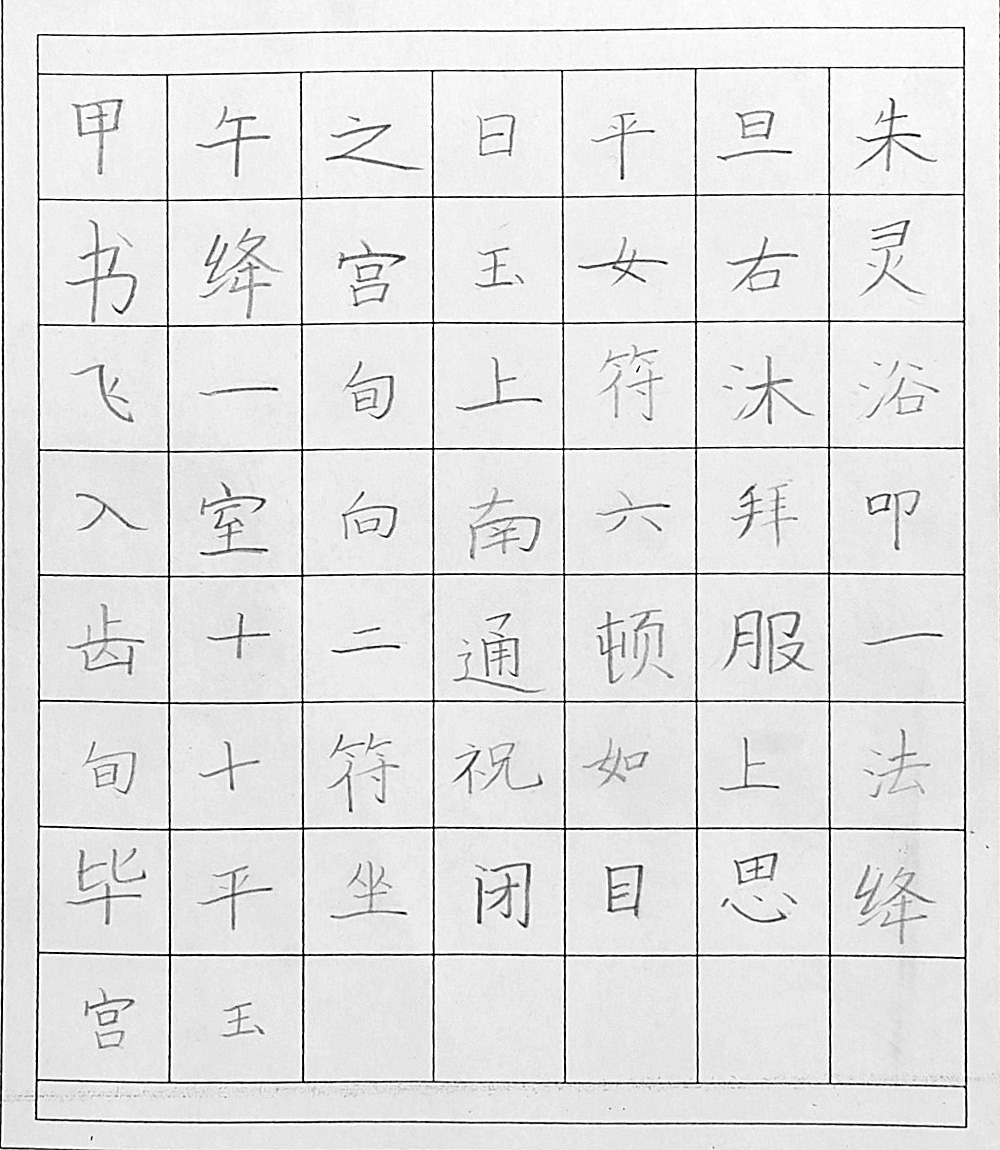 甲午之日平旦朱
书绛宫玉女右灵
飞一旬上符沐浴
入室向南六拜叩
齿十二通顿服一
旬十符祝如上法
毕平坐闭目思绛
宫玉